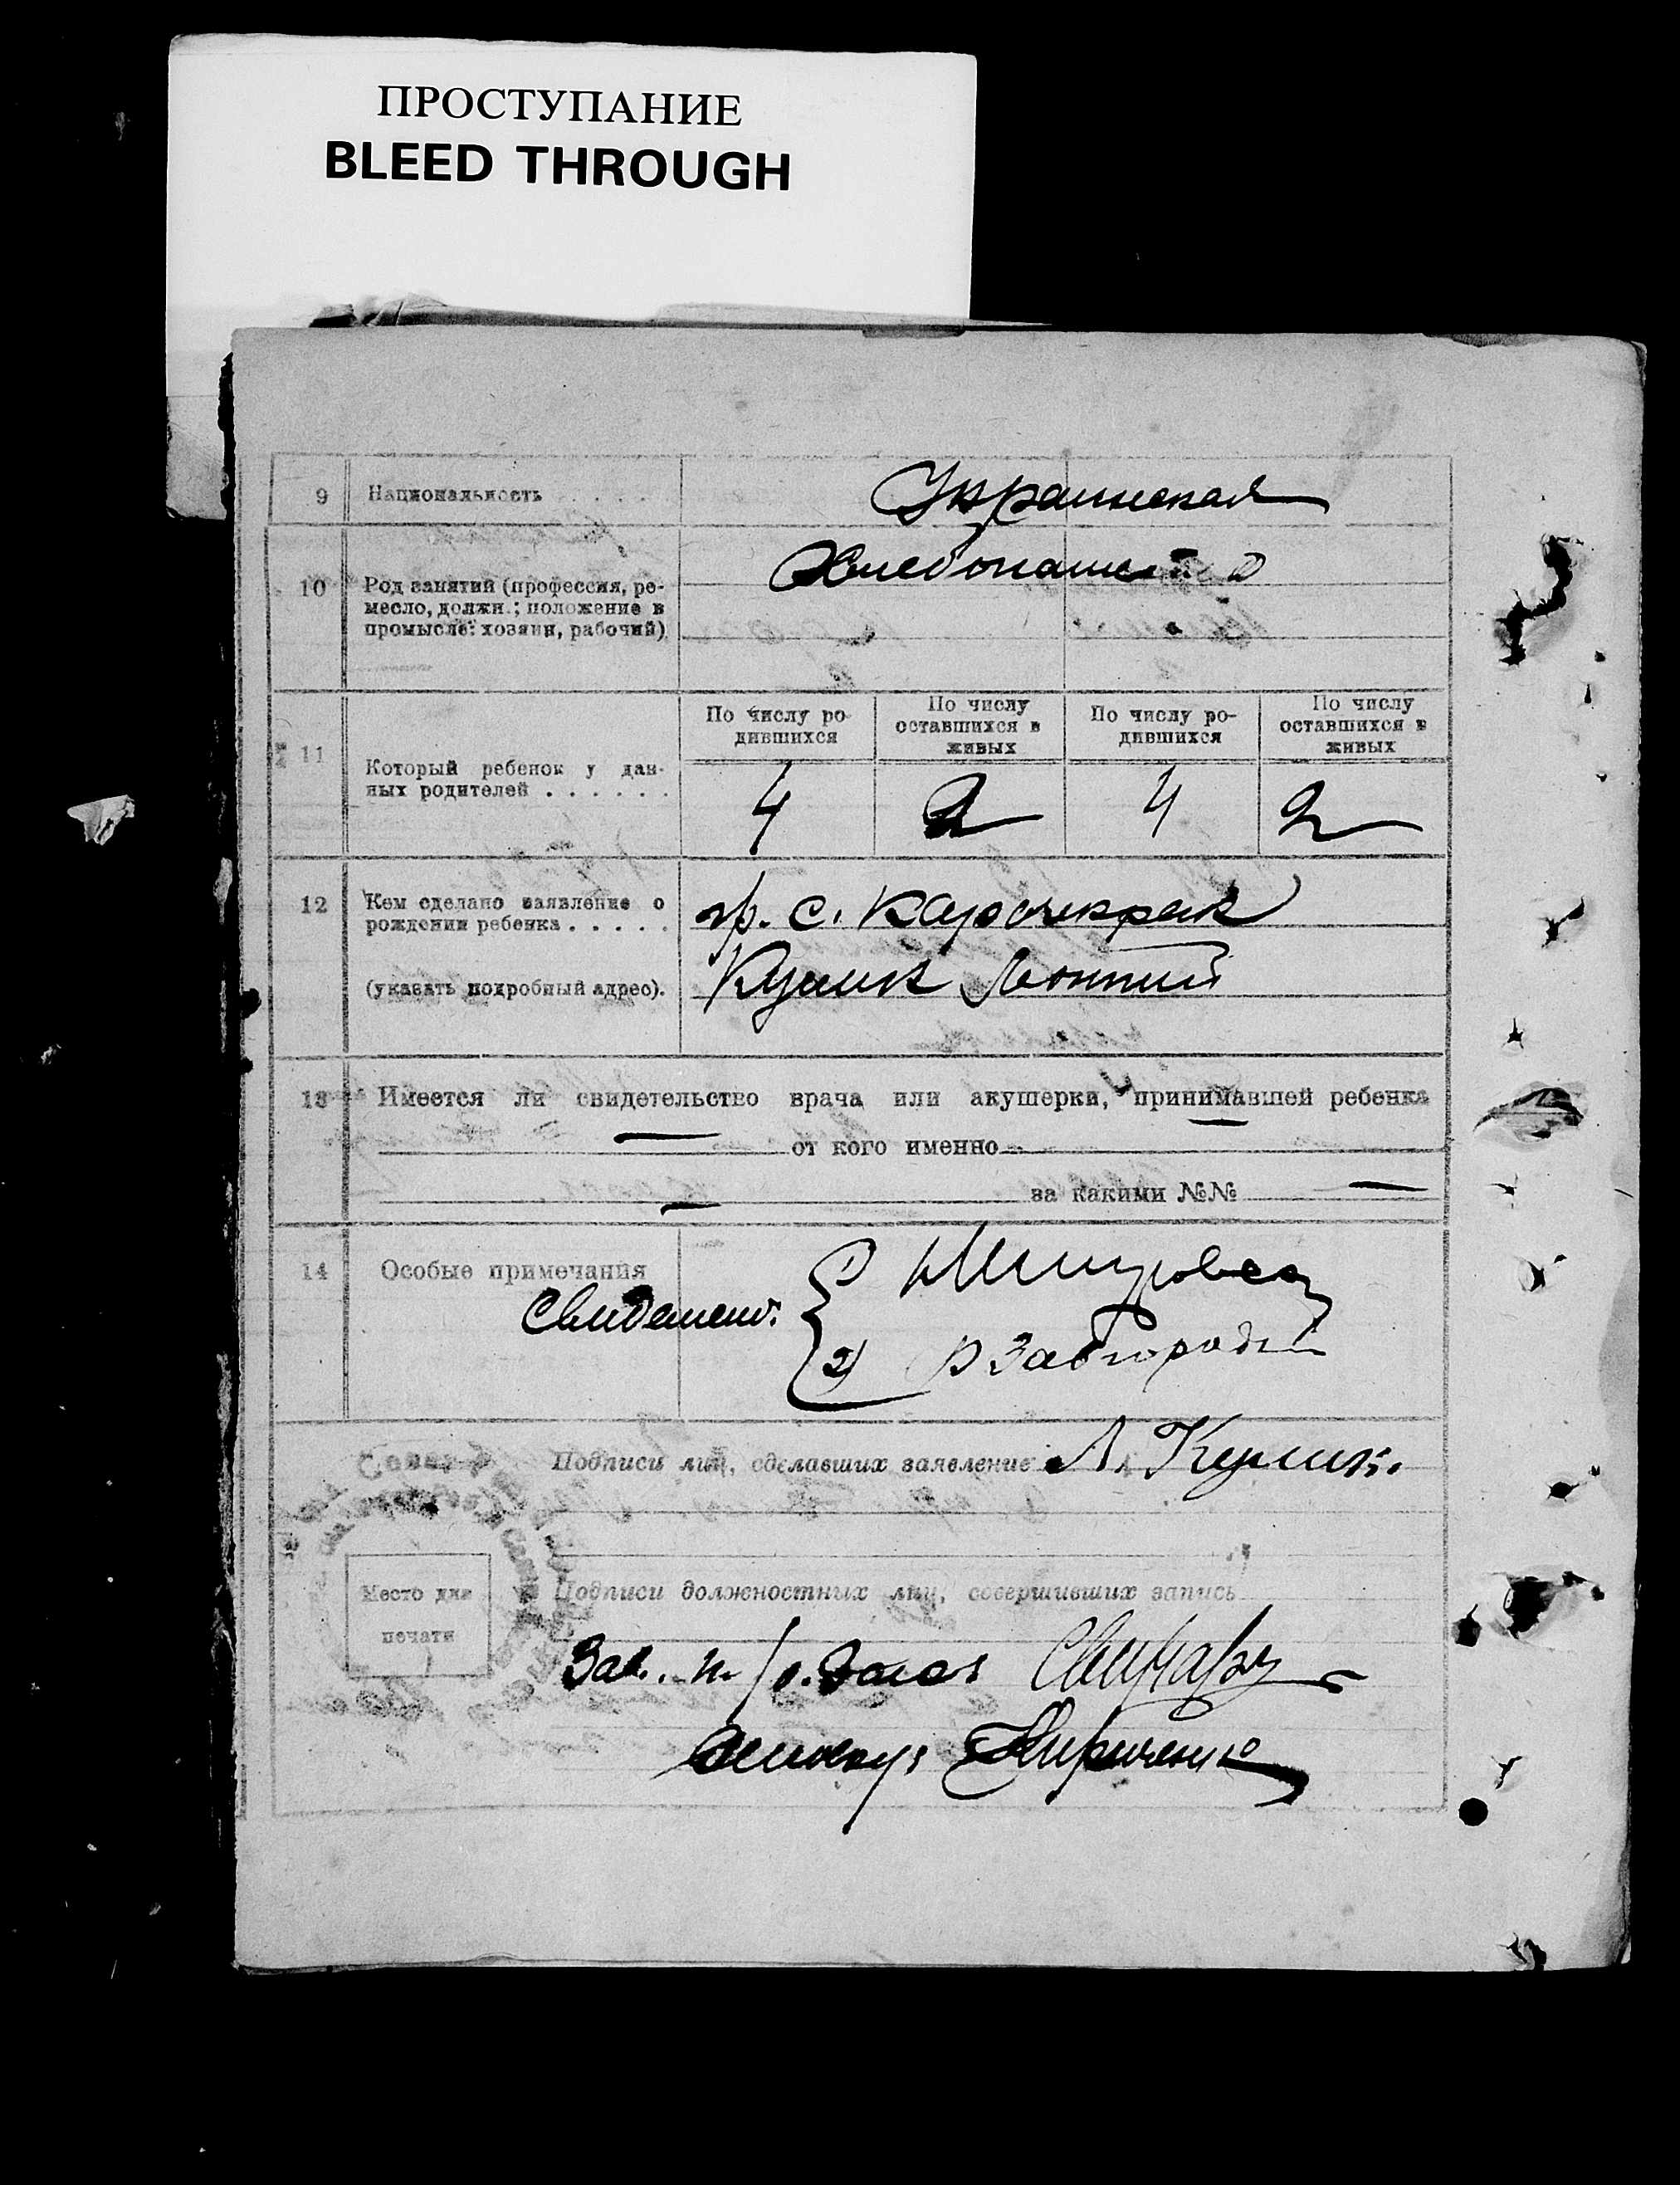 ПРОСТУПАНИЕ
BLEED THROUGH
9 Национальность . . . . . Украинская
10 Род занятий (профессия, ре-
месло, должн.; положение в
промысле: хозяин, рабочий)
Хлебопаше
11 Который ребенок у дан-
ных родителей . . . . . .
По числу ро-
дившихся
По числу
оставшихся в
живых
По числу ро-
дившихся
По числу
оставшихся в
живых
4 2 4 2
12 Кем сделано заявление о
рождении ребенка . . . . .
(указать подробный адрес).
гр. с. Карачекрак
Кулик
13 Имеется ли свидетельство врача или акушерки, принимавшей ребенка
— от кого именно —
— за какими №№ —
14 Особые примечания
Свидетели:
2) Завгородн
Подписи лиц, сделавших заявление Л. Кулик.
Место для
печати
Подписи должностных лиц, совершивших запись
Зав. п/о. Загса